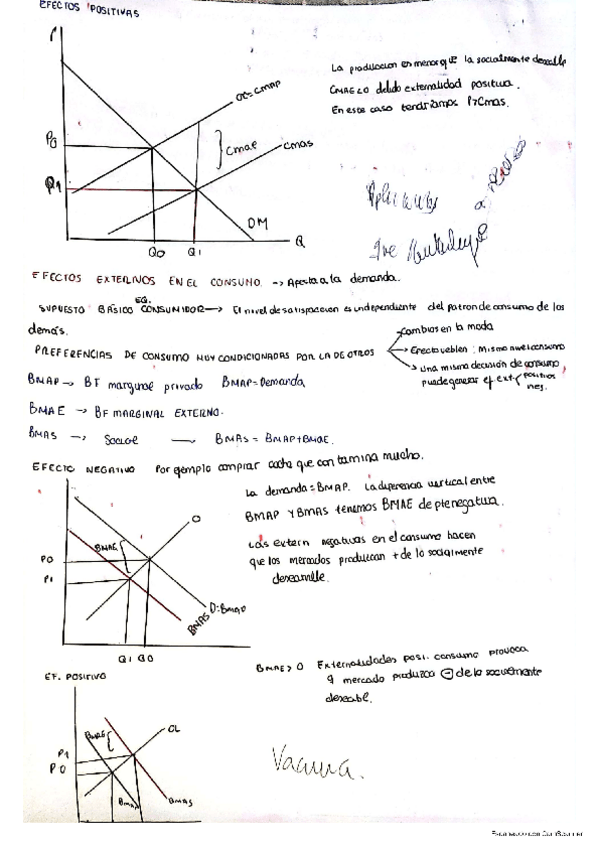 EFECTOS POSITIVAS
P
La produccion es menor que la socialmente deseable
CMAE<0 debido externalidad positiva.
En este caso tendriamos P>Cmas.
OL=CMAP
Cmae
CMAS
P0
P1
Q0 Q1
DM
Q
EFECTOS EXTERNOS EN EL CONSUMO. -> Apesta a la demanda.
SUPUESTO BÁSICO EQ. CONSUMIDOR -> El nivel de satisfaccion es independiente del patron de consumo de los
demás.
PREFERENCIAS DE CONSUMO MUY CONDICIONADAS POR LA DE OTROS
Cambios en la moda
Efecto veblen: Mismo nivel consumo
Una misma decisión de consumo,
puede generar ef ext positivos
neg.
BMAP -> BT marginal privado BMAP=Demanda
BMAE -> BF MARGINAL EXTERNO.
BMAS -> Social -> BMAS = BMAP+BMAE.
EFECTO NEGATIVO Por ejemplo comprar coche que contamina mucho.
La demanda=BMAP. La diferencia vertical entre
BMAP Y BMAS tenemos BMAE de negativa.
Las extern negativas en el consumo hacen
que los mercados produzcan + de lo socialmente
deseable.
O
BMAE
P0
P1
D=BMAP
BMAS
Q1 Q0
BMAE>0 Externalidades posi. consumo provoca
q mercado produzca - de lo socialmente
deseable.
EF. POSITIVO
BMAE
OL
P1
P0
BMAP
BMAS
Vacuna.